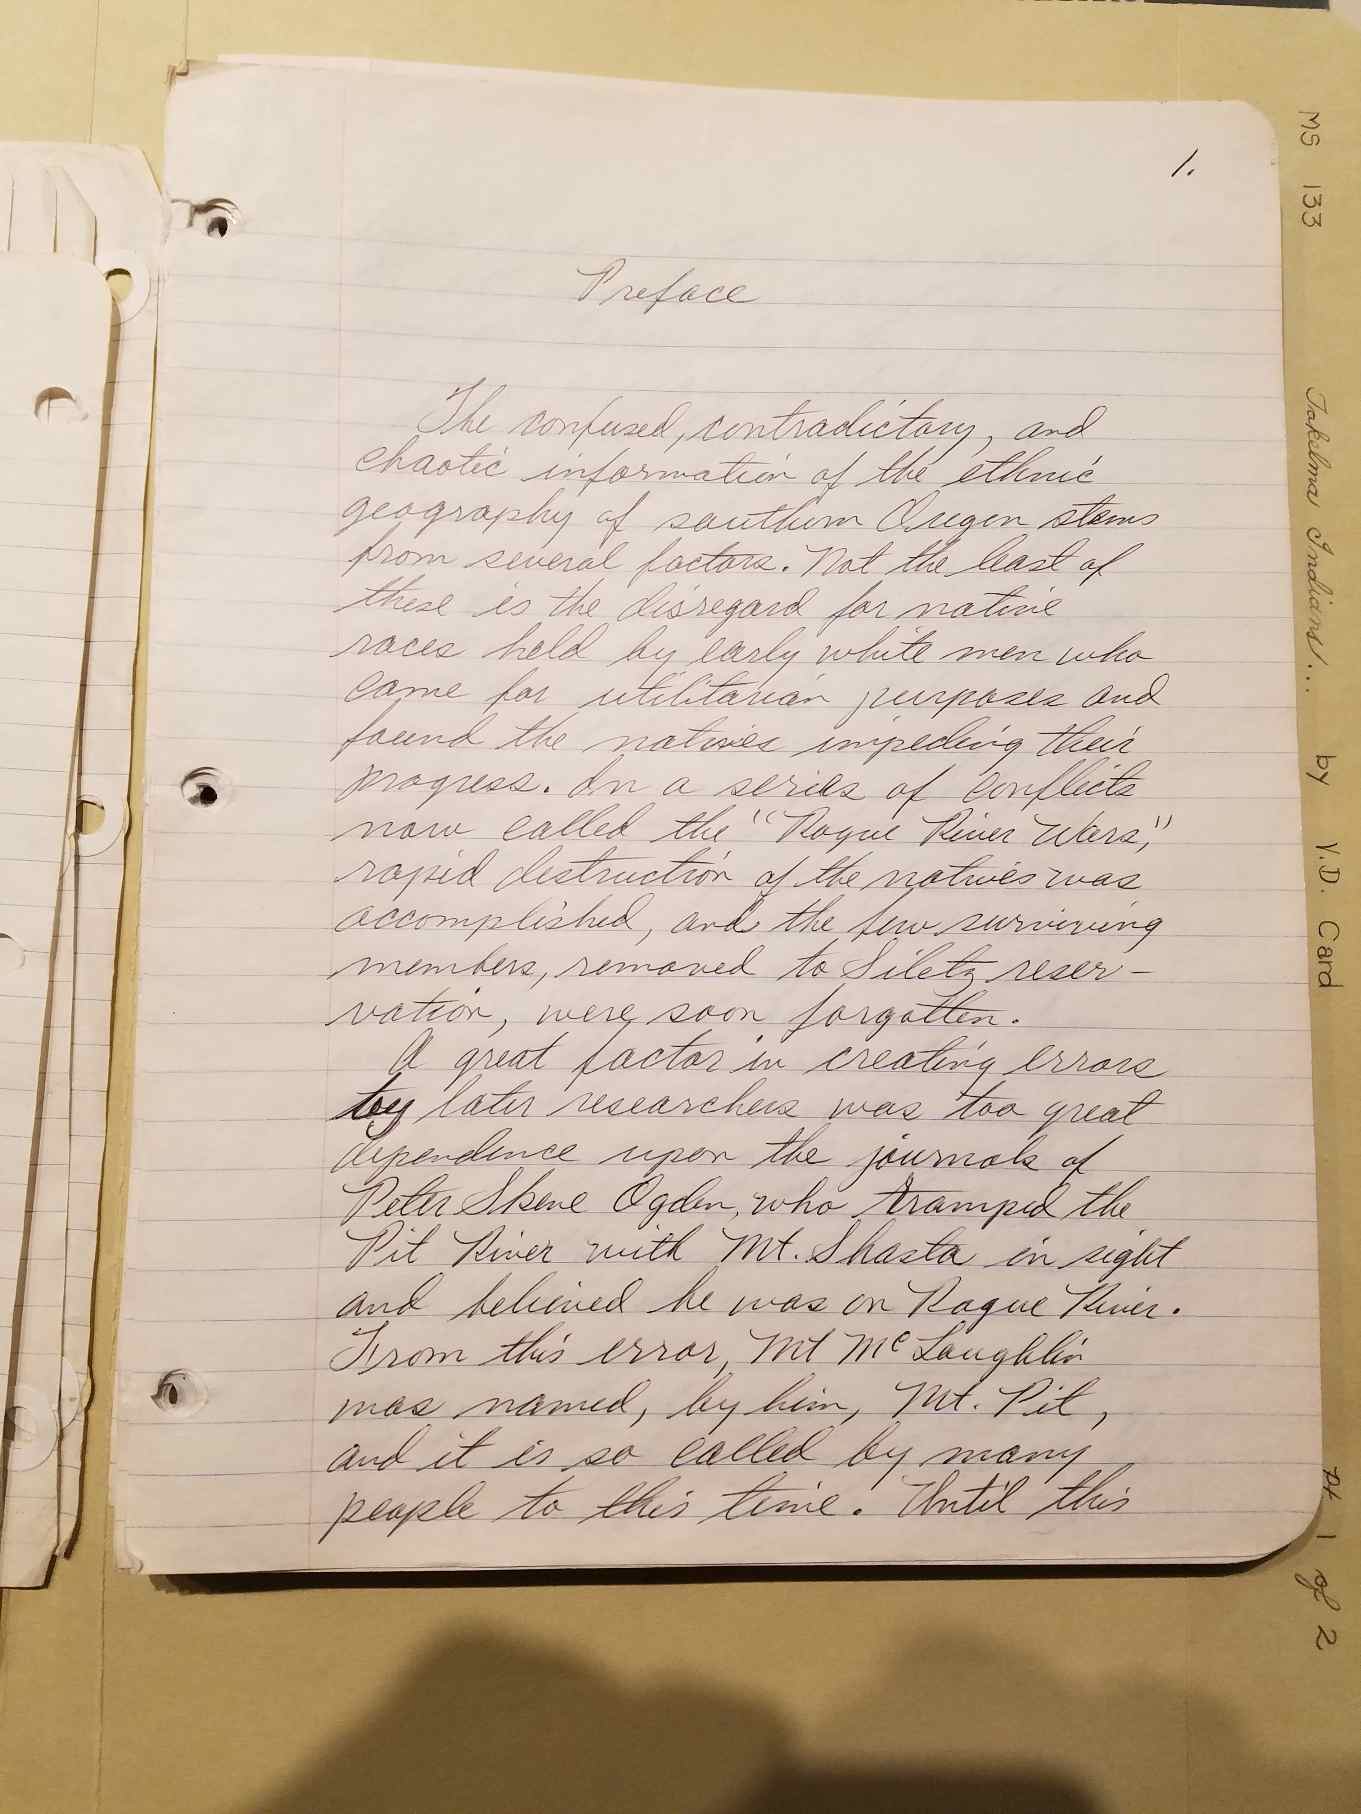 1.
Preface
The confused, contradictory, and
chaotic information of the ethnic
geography of southern Oregon stems
from several factors. Not the least of
these is the disregard for native
races held by early white men who
came for utilitarian purposes and
found the natives impeding their
progress. In a series of conflicts
now called the "Rogue River Wars,"
rapid destruction of the natives was
accomplished, and the few surviving
members, removed to Siletz reser-
vation, were soon forgotten.
A great factor in creating errors
by later researchers was too great
dependence upon the journals of
Peter Skene Ogden, who tramped the
Pit River with Mt. Shasta in sight
and believed he was on Rogue River.
From this error, Mt McLoughlin
was named, by him, Mt. Pit,
and it is so called by many
people to this time. Until this
MS 133 Takelma Indians... by V.D. Card pt 1 of 2